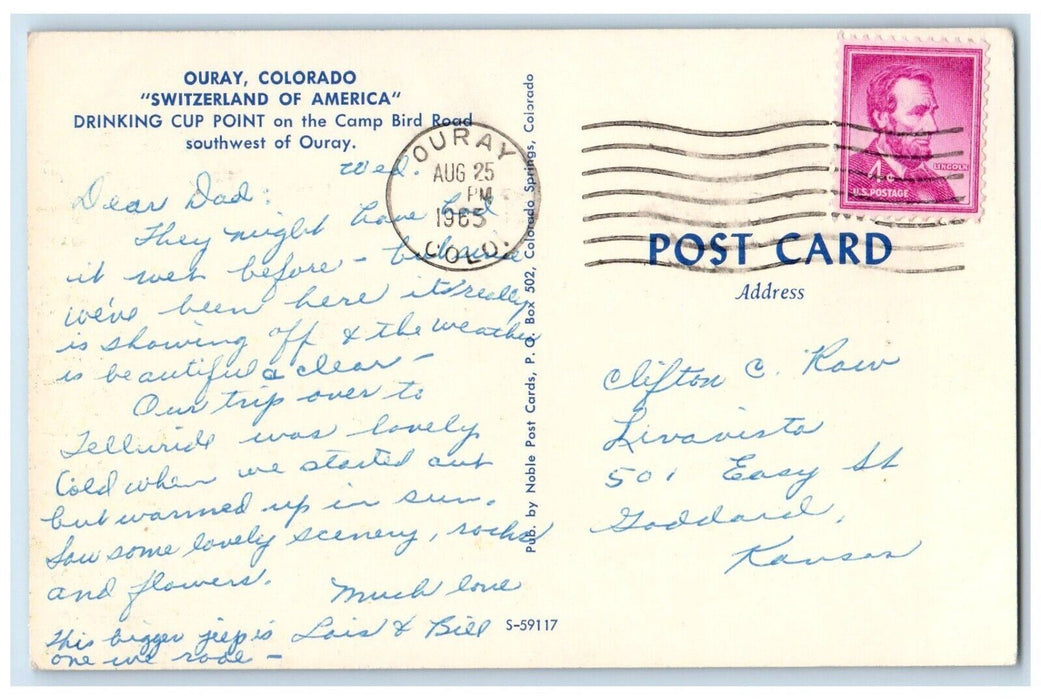 OURAY, COLORADO
"SWITZERLAND OF AMERICA"
DRINKING CUP POINT on the Camp Bird Road
southwest of Ouray.
Wed.
Dear Dad:
They might have had
it wet before - but since
we've been here it's really
is showing off & the weather
is beautiful & clear -
Our trip over to
Telluride was lovely
Cold when we started out
but warmed up in sun.
Saw some lovely scenery, rocks
and flowers.
Much love
Lois & Bill
This bigger jeep is
one we rode -
S-59117
Pub. by Noble Post Cards, P. O. Box 502, Colorado Springs, Colorado
OURAY
AUG 25
PM
1965
COLO.
LINCOLN
4c
U.S. POSTAGE
POST CARD
Address
Clifton C. Row
Livavista
501 Easy St
Goddard,
Kansas